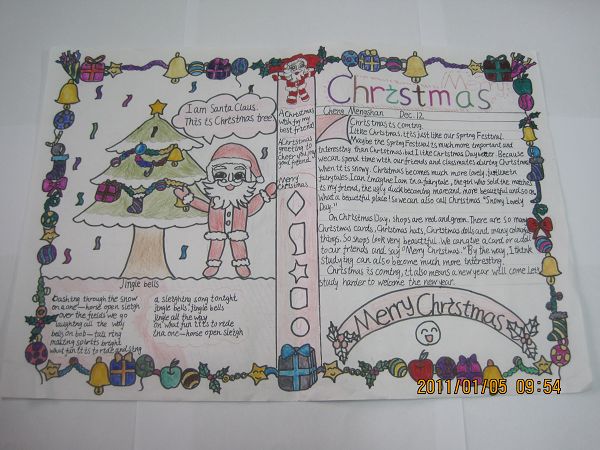 I am Santa Claus.
This is Christmas tree
Jingle bells
Dashing through the snow
on a one-horse open sleigh
over the fields we go
laughing all the way
bells on bob-tail ring
making spirits bright
what fun it is to ride and sing
a sleighing song tonight
jingle bells, jingle bells
jingle all the way
on what fun it is to ride
in a one-horse open sleigh
A Christmas
wish for my
best friend!
A Christmas
greeting to
cheer you my
good friends.
Merry
Christmas
Christmas
Cheng Mengshan Dec. 12
Christmas is coming.
I like Christmas. It is just like our Spring Festival.
Maybe the Spring Festival is much more important and
interesting than Christmas, but I like the Christmas Day better. Because
we can spend time with our friends and classmates during Christmas
when it is snowy. Christmas becomes much more lovely, just like in
fairytales. I can imagine I am in a fairytale, the girl who sold the matches
is my friend, the ugly duck becoming more and more beautiful and so on.
What a beautiful place! So we can also call Christmas "Snowy Lovely
Day."
On Christmas Day, shops are red and green. There are so many
Christmas cards, Christmas hats, Christmas dolls and many colourful
things. So shops look very beautiful. We can give a card or a doll
to our friends and say "Merry Christmas." By the way, I think
studying can also become much more interesting.
Christmas is coming, it also means a new year will come. Lets
study harder to welcome the new year.
Merry Christmas
2011/01/05 09:54